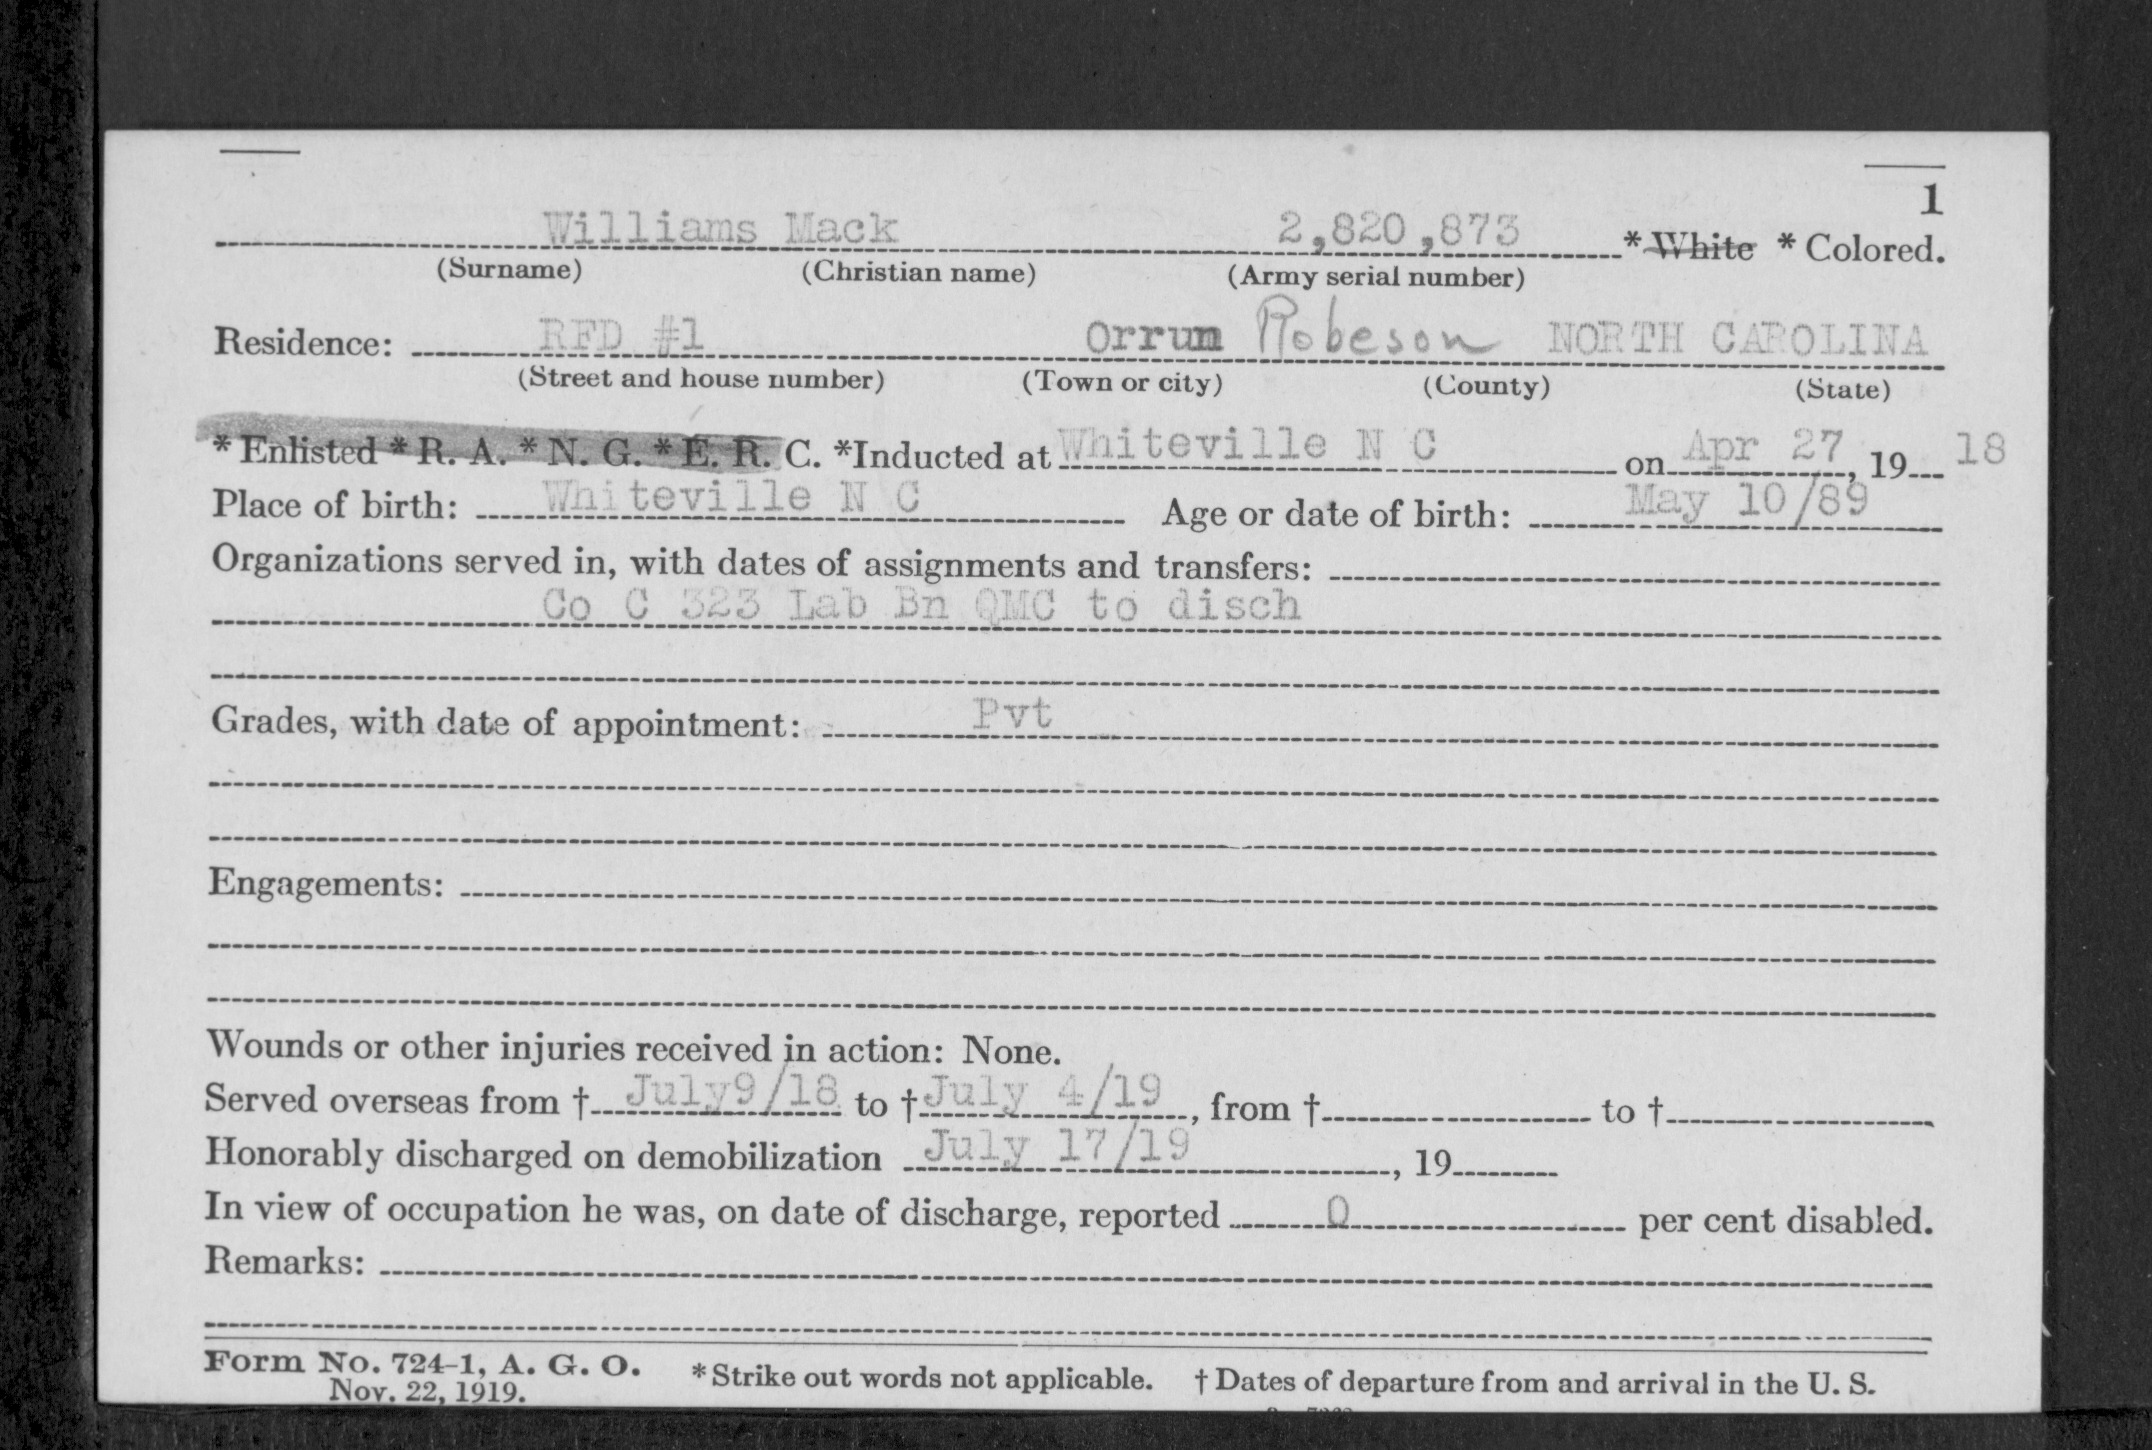 1
Williams Mack 2,820,873 * White * Colored.
(Surname) (Christian name) (Army serial number)
Residence: RFD #1 Orrum Robeson NORTH CAROLINA
(Street and house number) (Town or city) (County) (State)
* Enlisted * R. A. * N. G. * E. R. C. *Inducted at Whiteville N C on Apr 27, 19 18
Place of birth: Whiteville N C Age or date of birth: May 10/89
Organizations served in, with dates of assignments and transfers:
Co C 323 Lab Bn QMC to disch
Grades, with date of appointment: Pvt
Engagements:
Wounds or other injuries received in action: None.
Served overseas from † July9/18 to † July 4/19, from † to †
Honorably discharged on demobilization July 17/19, 19
In view of occupation he was, on date of discharge, reported 0 per cent disabled.
Remarks:
Form No. 724-1, A. G. O. * Strike out words not applicable. † Dates of departure from and arrival in the U. S.
Nov. 22, 1919.